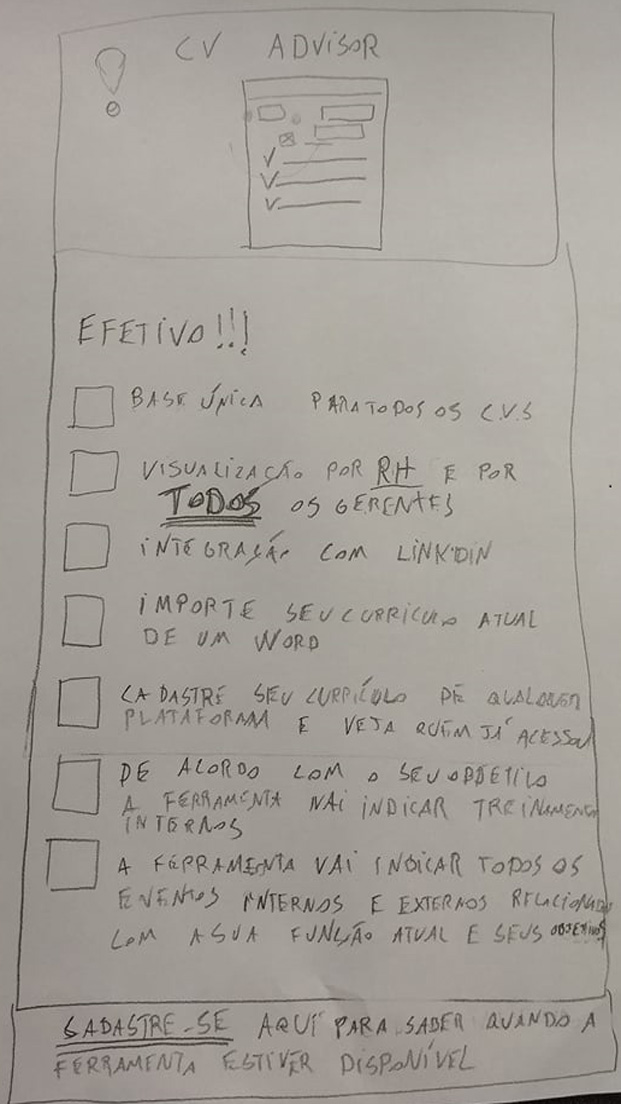 CV ADVISOR
EFETIVO!!!
BASE ÚNICA PARA TODOS OS C.V.S
VISUALIZAÇÃO POR RH E POR
TODOS OS GERENTES
INTEGRAÇÃO COM LINK'DIN
IMPORTE SEU CURRICULO ATUAL
DE UM WORD
CADASTRE SEU CURRÍCULO DE QUALQUER
PLATAFORMA E VEJA QUEM JÁ ACESSOU
DE ACORDO COM O SEU OBJETIVO
A FERRAMENTA VAI INDICAR TREINAMENTO
INTERNOS
A FERRAMENTA VAI INDICAR TODOS OS
EVENTOS INTERNOS E EXTERNOS RELACIONADOS
COM A SUA FUNÇÃO ATUAL E SEUS OBJETIVOS
CADASTRE-SE AQUI PARA SABER QUANDO A
FERRAMENTA ESTIVER DISPONÍVEL